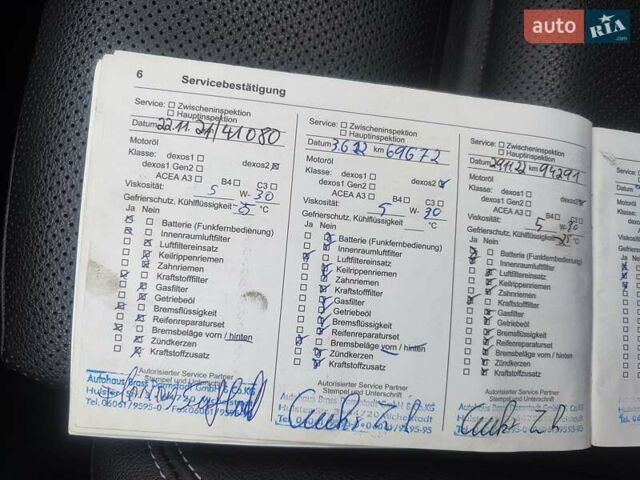 auto RIA.com
6 Servicebestätigung
Service: Zwischeninspektion
Hauptinspektion
Datum 22.11.21/41080
Motoröl
Klasse: dexos1 dexos2
dexos1 Gen2
ACEA A3 B4 C3
Viskosität: 5 W- 30
Gefrierschutz, Kühlflüssigkeit -35 °C
Ja Nein
Batterie (Funkfernbedienung)
Innenraumluftfilter
Luftfiltereinsatz
Keilrippenriemen
Zahnriemen
Kraftstofffilter
Gasfilter
Getriebeöl
Bremsflüssigkeit
Reifenreparaturset
Bremsbeläge vorn / hinten
Zündkerzen
Kraftstoffzusatz
Autorisierter Service Partner
Stempel und Unterschrift
Autohaus Brass
Tel. 06061/9595-0
Service: Zwischeninspektion
Hauptinspektion
Datum 3.6.22 km 69672
Motoröl
Klasse: dexos1 dexos2
dexos1 Gen2
ACEA A3 B4 C3
Viskosität: 5 W- 30
Gefrierschutz, Kühlflüssigkeit °C
Ja Nein
Batterie (Funkfernbedienung)
Innenraumluftfilter
Luftfiltereinsatz
Keilrippenriemen
Zahnriemen
Kraftstofffilter
Gasfilter
Getriebeöl
Bremsflüssigkeit
Reifenreparaturset
Bremsbeläge vorn / hinten
Zündkerzen
Kraftstoffzusatz
Autorisierter Service Partner
Stempel und Unterschrift
Autohaus Brass
Service: Zwischeninspektion
Hauptinspektion
Datum 29.11.22 km 94291
Motoröl
Klasse: dexos1 dexos2
dexos1 Gen2
ACEA A3 B4 C3
Viskosität: 5 W- 30
Gefrierschutz, Kühlflüssigkeit °C
Ja Nein
Batterie (Funkfernbedienung)
Innenraumluftfilter
Luftfiltereinsatz
Keilrippenriemen
Zahnriemen
Kraftstofffilter
Gasfilter
Getriebeöl
Bremsflüssigkeit
Reifenreparaturset
Bremsbeläge vorn / hinten
Zündkerzen
Kraftstoffzusatz
Autorisierter Service Partner
Stempel und Unterschrift
Autohaus Brass